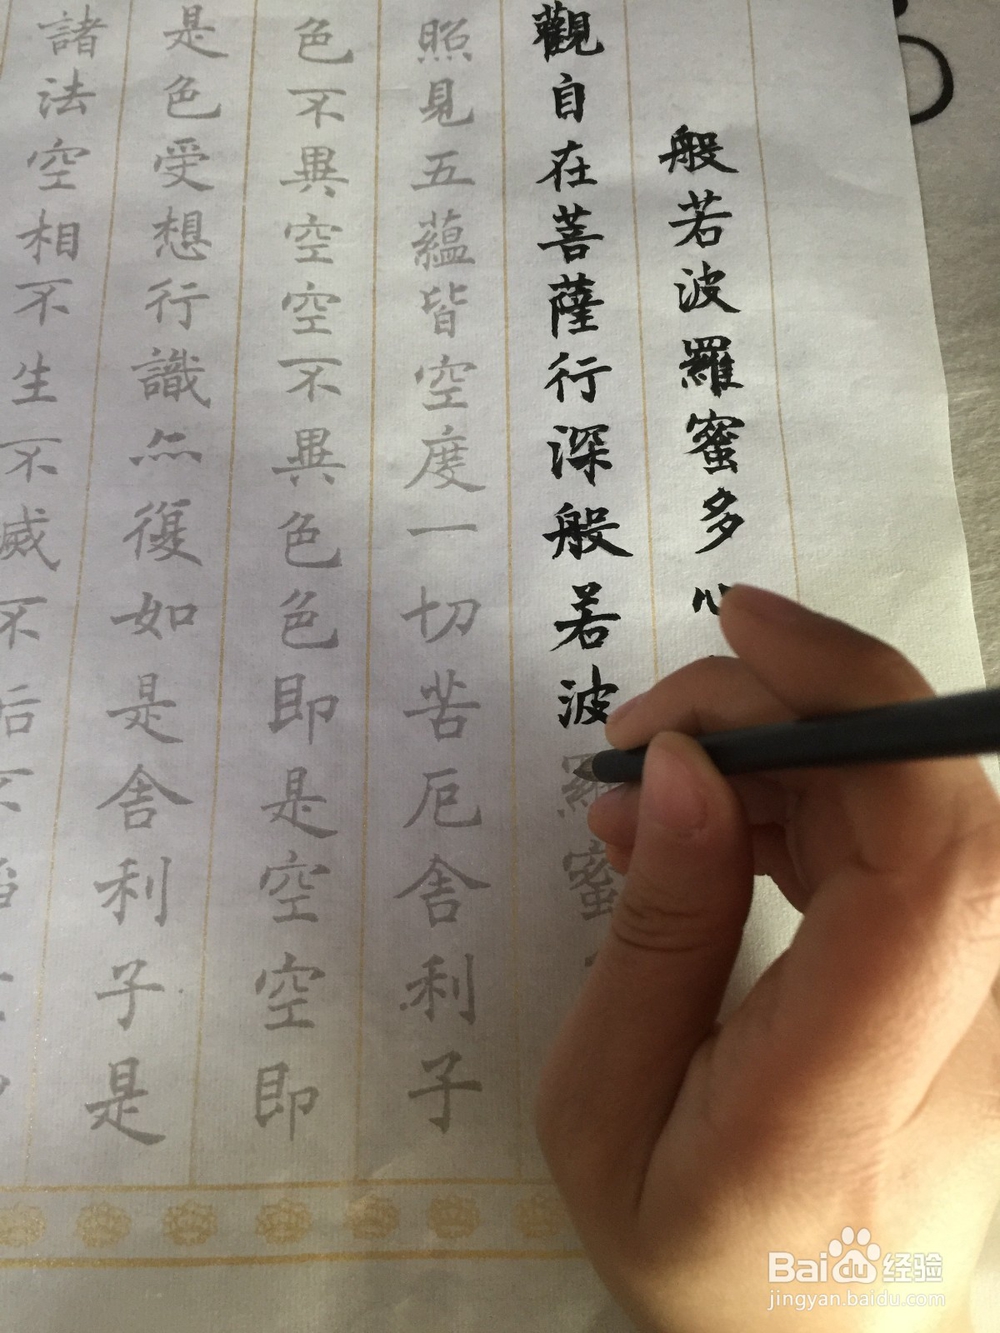 般若波羅蜜多心
觀自在菩薩行深般若波羅蜜
照見五蘊皆空度一切苦厄舎利子
色不異空空不異色色即是空空即
是色受想行識亦復如是舎利子是
諸法空相不生不滅不垢不
Baidu 经验
jingyan.baidu.com